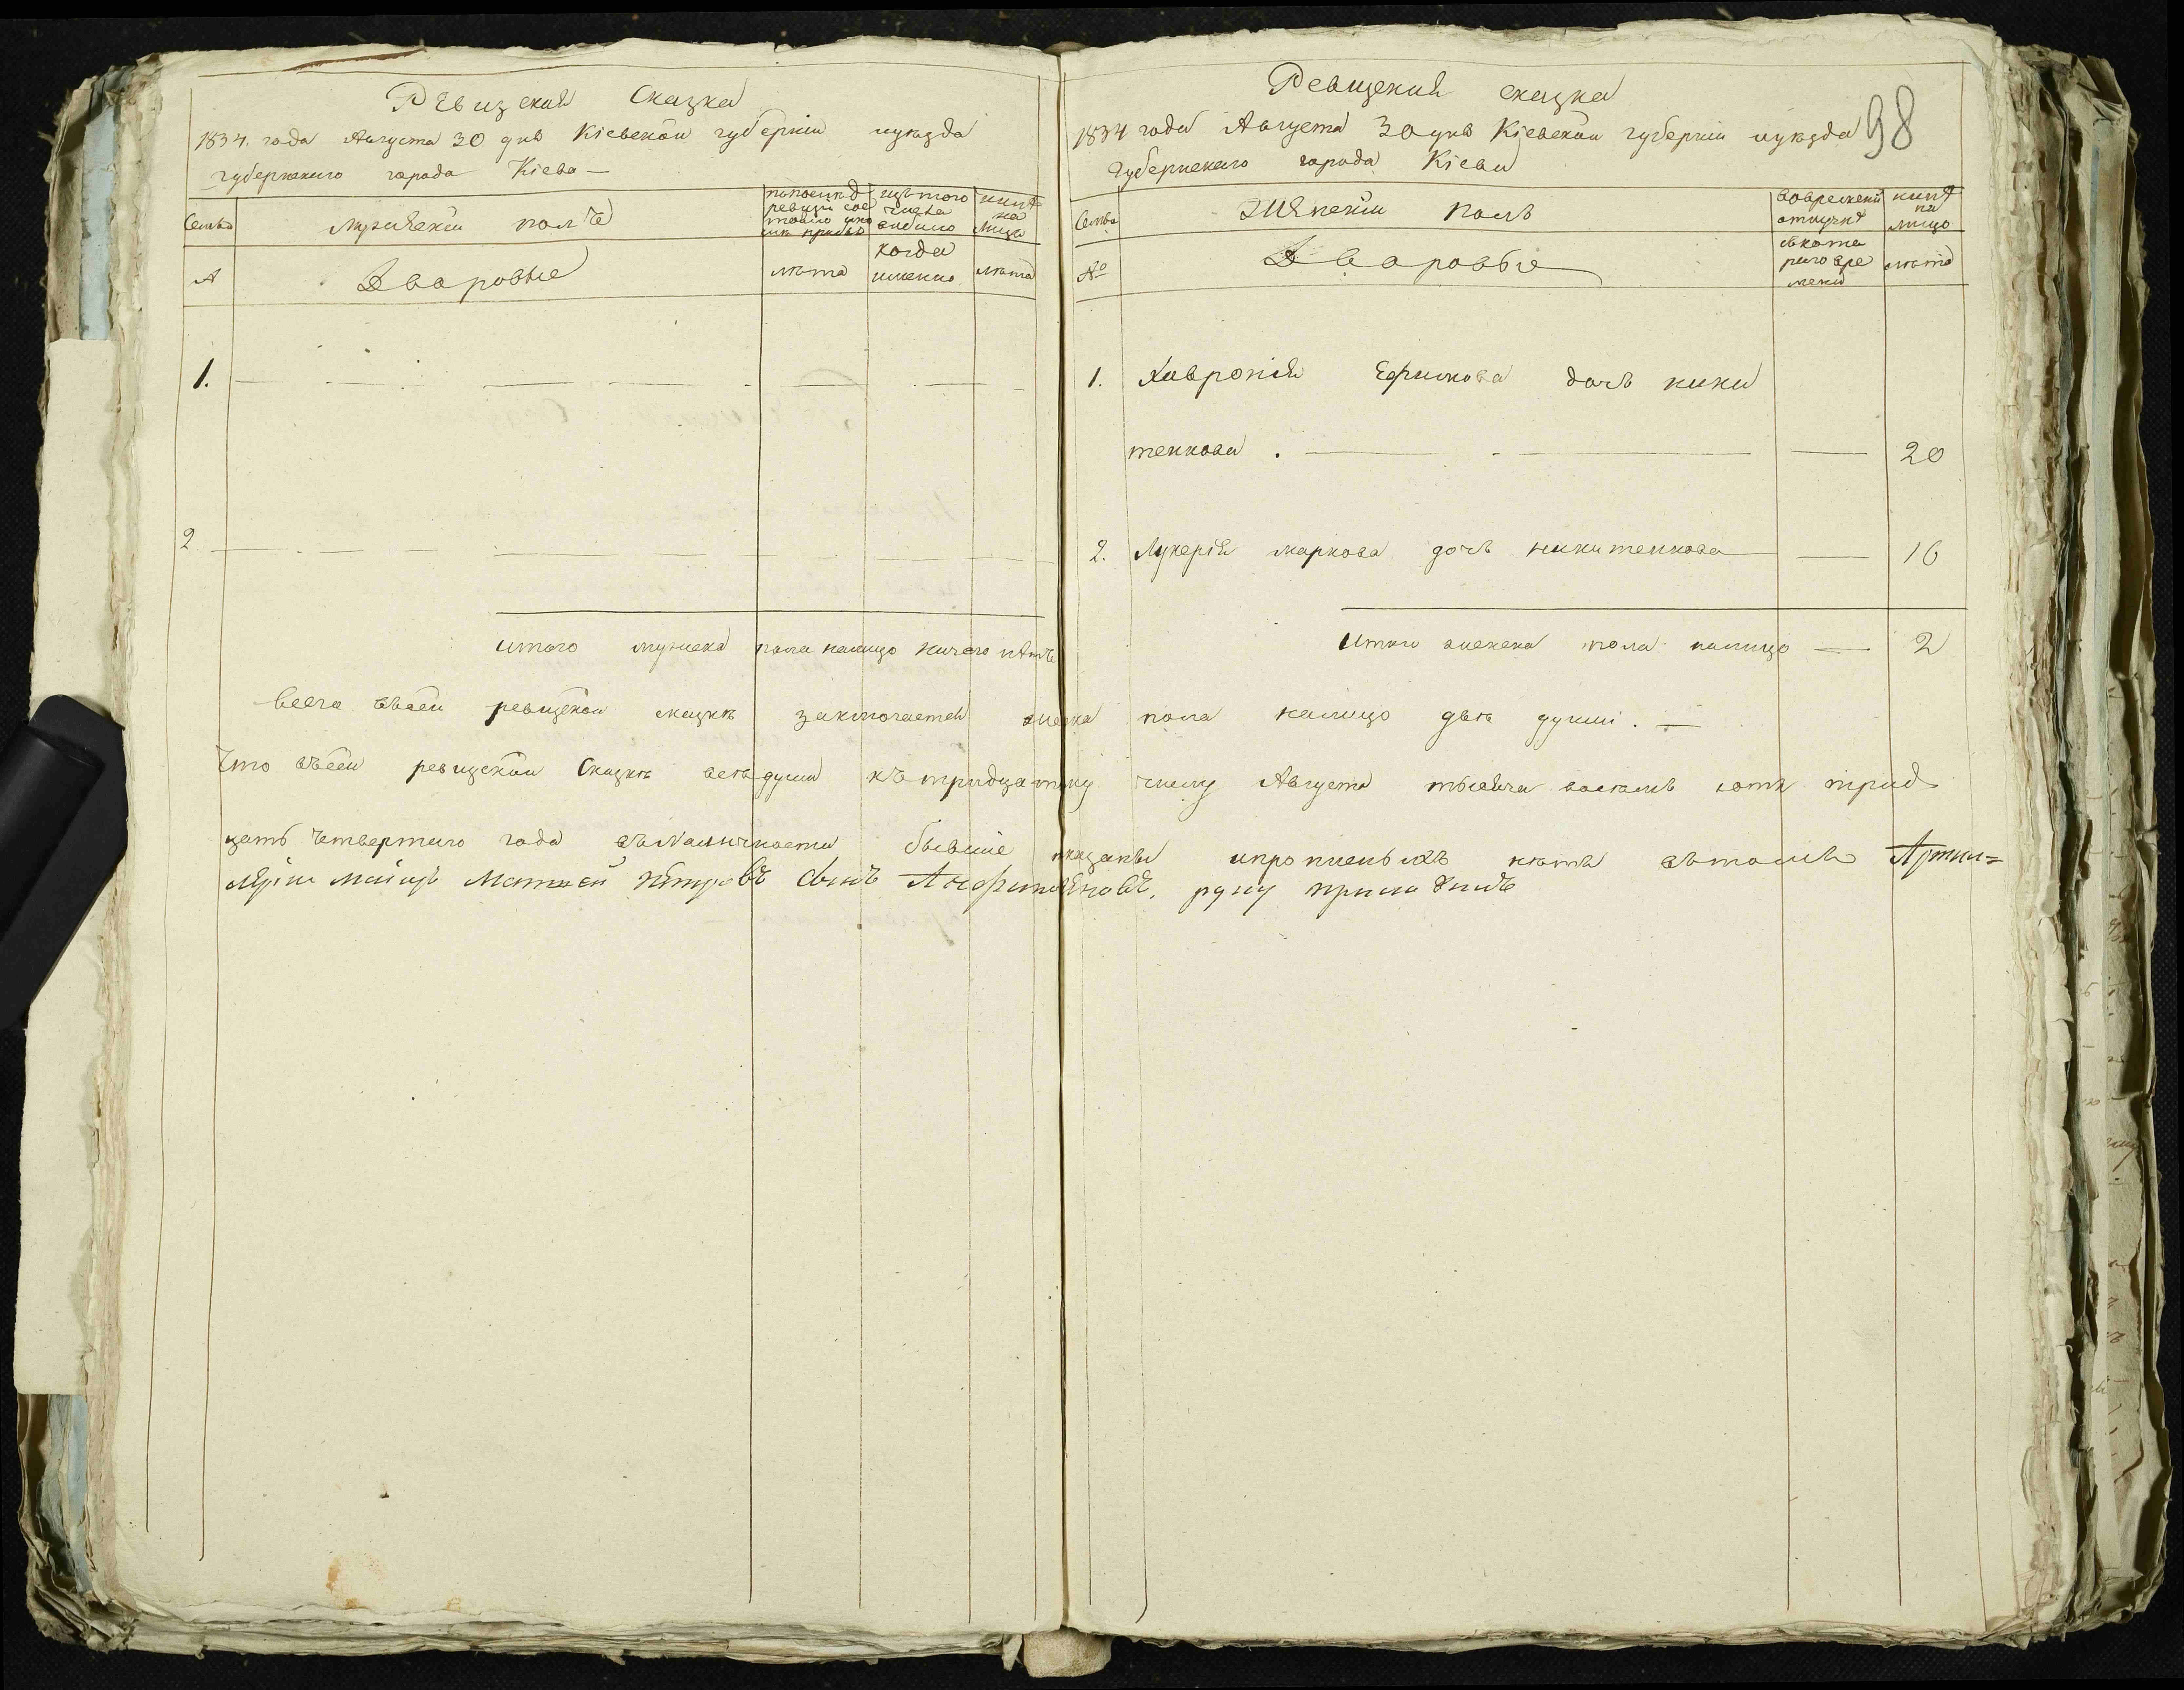 Ревизская Сказка
1834. года Августа 30 дня Кіевской губерніи иуѣзда
губернскаго города Кіева —
Семья
мужеской полъ
попоследн ревизіи состояло
изъ того числа выбыло
ныне на лицо
№
Дворовые
лѣта
когда именно
лѣта
1.
2
итого мужска пола налицо ничего нѣтъ
98
Ревизская сказка
1834 года Августа 30 дня Кіевской губерніи иуѣзда
Губернскаго города Кіева
Семья
Женскій полъ
вовременной отлучкѣ
ныне на лицо
№
Дворовые
скотораго времени
лѣта
1. Хавронія Ефимова дочь ники
тенкова . — 20
2. Лукерія маркова дочь никитенкова — 16
Итого женска пола налицо — 2
всего всей ревизской сказкѣ заключается женска пола налицо двѣ души. —
Что всей ревизской Сказкѣ всѣ души къ тридцатому числу Августа тысяча восемь сотъ трид
цать четвертаго года вналичности бывшіе показаны ипрописныхъ нѣтъ втомъ Артил=
леріи Маіоръ Матвей Петровъ сынъ руку приложилъ